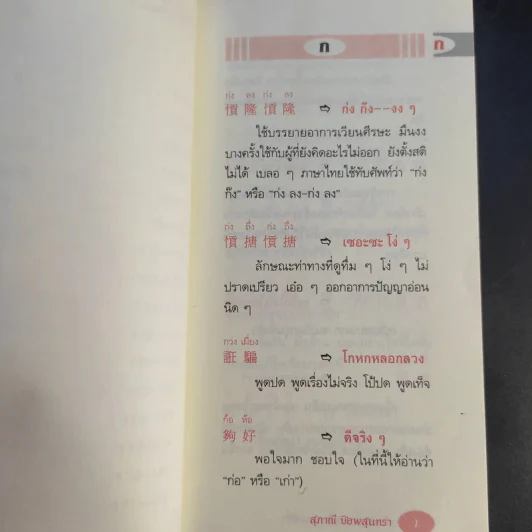 ก
ก
ก่ง ลง ก่ง ลง
慣 隆 慣 隆 ⇨ ก่ง กึง--งง ๆ
ใช้บรรยายอาการเวียนศีรษะ มึนงง
บางครั้งใช้กับผู้ที่ยังคิดอะไรไม่ออก ยังตั้งสติ
ไม่ได้ เบลอ ๆ ภาษาไทยใช้ทับศัพท์ว่า “ก่ง
ก๊ง” หรือ “ก่ง ลง-ก่ง ลง”
ก่ง ถึ่ง ก่ง ถึ่ง
搪 搪 ⇨ เซอะซะ โง่ ๆ
ลักษณะท่าทางที่ดูทึ่ม ๆ โง่ ๆ ไม่
ปราดเปรียว เอ๋อ ๆ ออกอาการปัญญาอ่อน
นิด ๆ
กวง เพี่ยง
誆 騙 ⇨ โกหกหลอกลวง
พูดปด พูดเรื่องไม่จริง โป้ปด พูดเท็จ
ก้อ ห้อ
夠 好 ⇨ ดีจริง ๆ
พอใจมาก ชอบใจ (ในที่นี้ให้อ่านว่า
“ก่อ” หรือ “เก่า”)
สุภาณี ปิยพสุนทรา 1